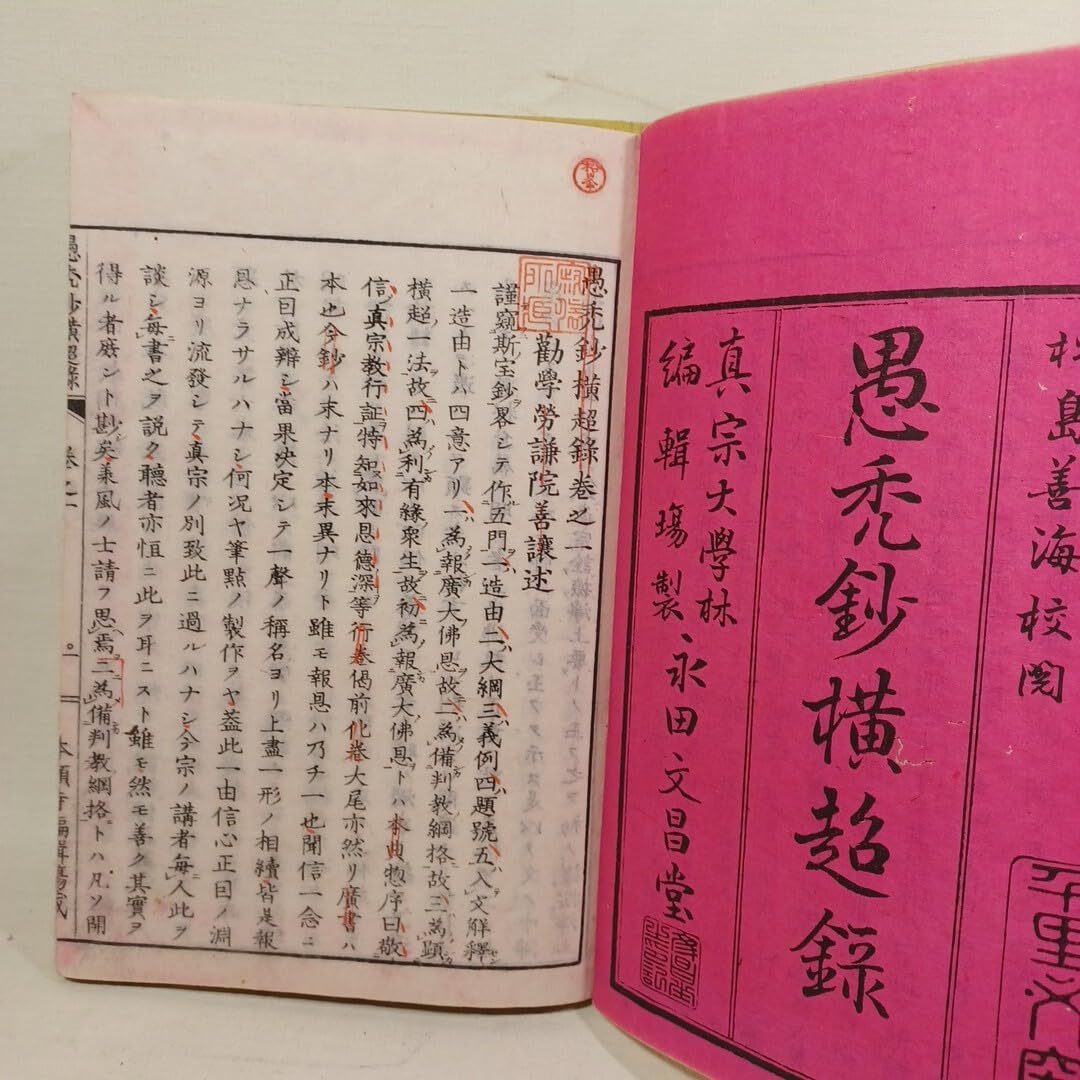 松島善海校閲
愚禿鈔横超錄
真宗大學林
編輯塲製
永田文昌堂
愚禿鈔横超錄巻之一
勸學勞謙院善讓述
謹窺斯宝鈔畧シテ作五門一造由二大綱三義例四題號五入文解釋
一造由トハ四意アリ一為報廣大佛恩故二為備判教綱格故三為顕
横超一法故四為利有縁衆生故初為報廣大佛恩トハ本典惣序曰敬
信真宗教行証特知如來恩德深等行巻偈前化巻大尾亦然リ廣書ハ
本也今鈔ハ末ナリ本末異ナリト雖モ報恩ハ乃チ一也聞信一念ニ
正曰成辦シ當果決定シテ一聲ノ稱名ヨリ上盡一形ノ相續皆是報
恩ナラサルハナシ何況ヤ筆點ノ製作ヲヤ葢此一由信心正曰ノ淵
源ヨリ流發シテ真宗ノ別致此ニ過ルハナシ今宗ノ講者毎人此ヲ
談シ毎書之ヲ説ク聽者亦恒ニ此ヲ耳ニスト雖モ然モ善ク其實ヲ
得ル者庶ント尠矣義風ノ士請フ思焉二為備判教綱格トハ凡ソ開
愚禿鈔横超錄
巻之一
一
本願寺編輯塲蔵